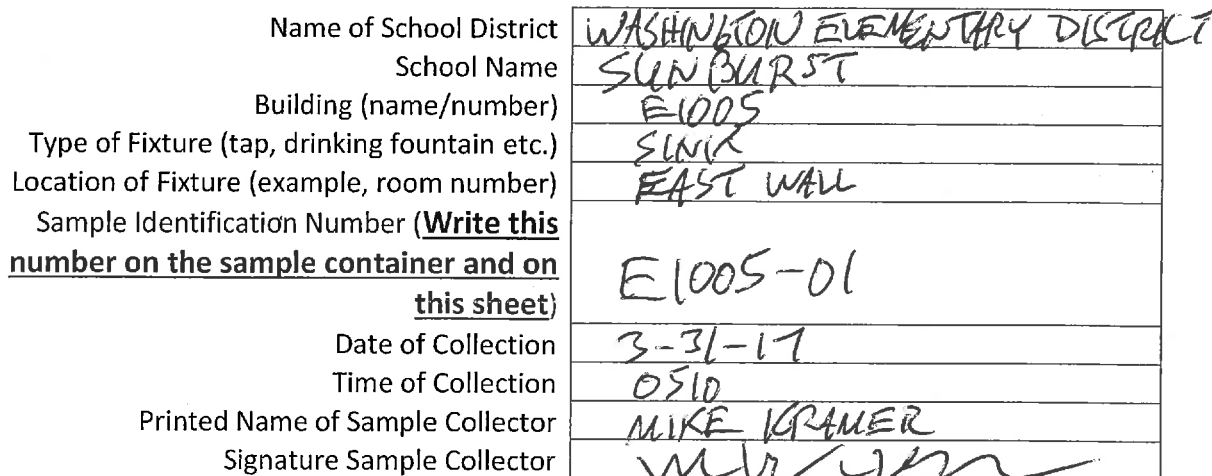 Name of School District WASHINGTON ELEMENTARY DISTRICT
School Name SUNBURST
Building (name/number) E1005
Type of Fixture (tap, drinking fountain etc.) SINK
Location of Fixture (example, room number) EAST WALL
Sample Identification Number (Write this
number on the sample container and on E1005-01
this sheet)
Date of Collection 3-31-17
Time of Collection 0510
Printed Name of Sample Collector MIKE KRAMER
Signature Sample Collector